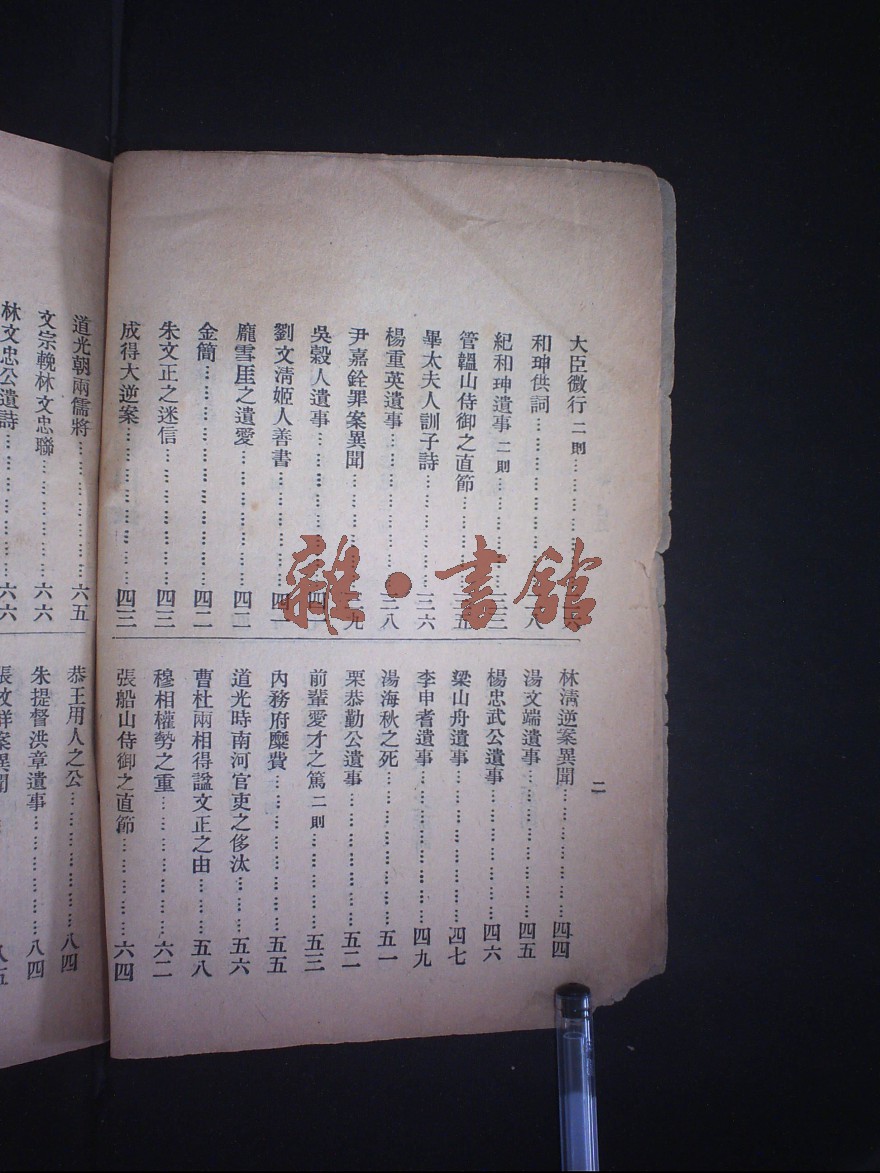 大臣微行 二則……六
和珅供詞……八
紀和珅遺事 二則……三三
管韞山侍御之直節……三五
畢太夫人訓子詩……三六
楊重英遺事……三八
尹嘉銓罪案異聞……九
吳穀人遺事……四一
劉文清姬人善書……四一
龐雪厓之遺愛……四二
金簡……四二
朱文正之迷信……四三
成得大逆案……四三
林清逆案異聞……四四
湯文端遺事……四五
楊忠武公遺事……四六
梁山舟遺事……四七
李申耆遺事……四九
湯海秋之死……五一
栗恭勤公遺事……五二
前輩愛才之篤 二則……五三
內務府糜費……五五
道光時南河官吏之侈汰……五六
曹杜兩相得諡文正之由……五八
穆相權勢之重……六二
張船山侍御之直節……六四
二
道光朝兩儒將……六五
文宗輓林文忠聯……六六
林文忠公遺詩……六六
恭王用人之公……八四
朱提督洪章遺事……八四
雜·書館